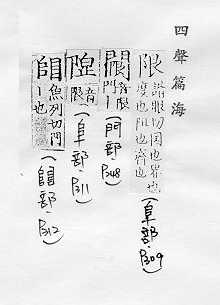 四聲篇海
限
切国也界也
度也阻也齊也
(阜部.P309)
音限
門丨
(門部.P348)
音
限
(阜部.P311)
魚列切門
丨也
部.P312)